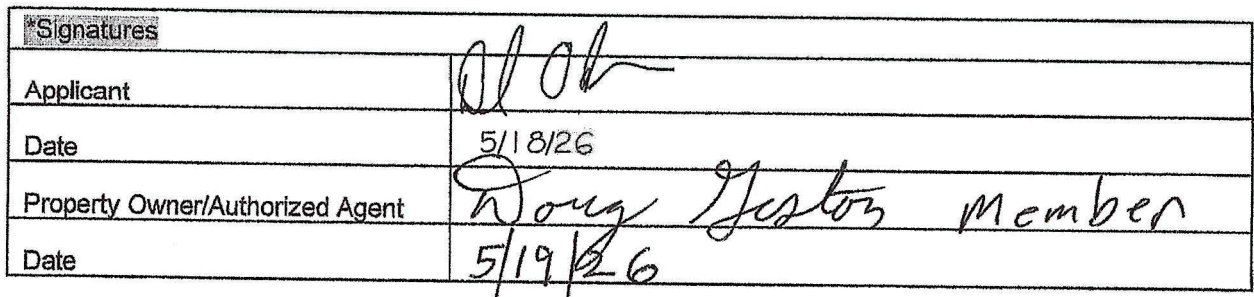 *Signatures
Applicant
Date 5/18/26
Property Owner/Authorized Agent Doug Member
Date 5/19/26